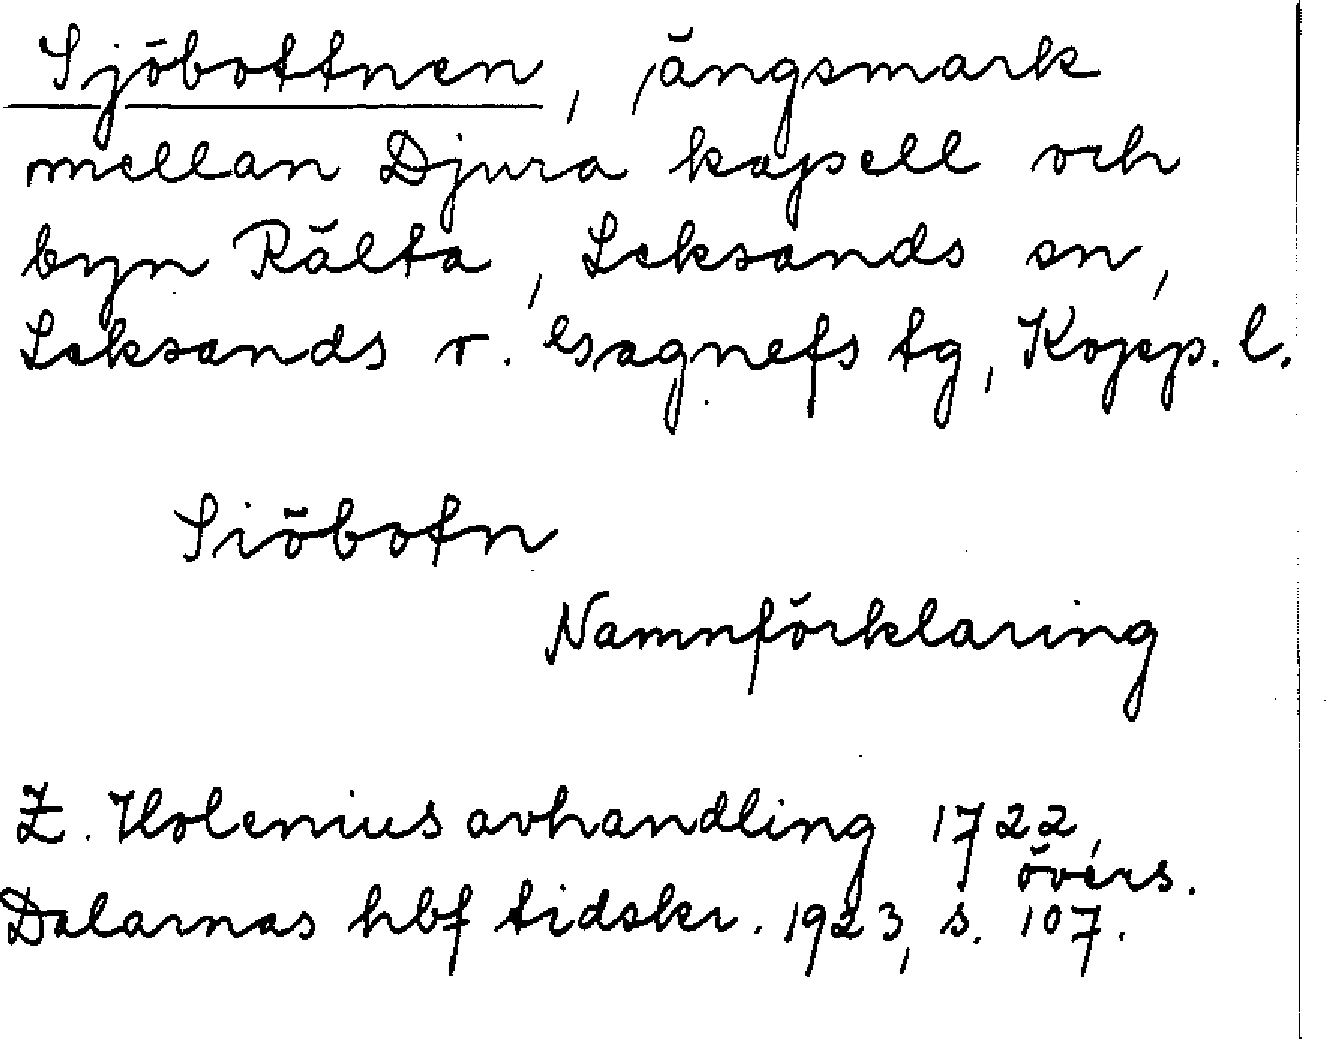 Sjöbottnen, ängsmark
mellan Djura kapell och
byn Rälta, Leksands sn,
Leksands o. Gagnefs tg, Kopp. l.
Siöbotn
Namnförklaring
Z. Holenius avhandling 1722,
övers.
Dalarnas hbf tidskr. 1923, s. 107.